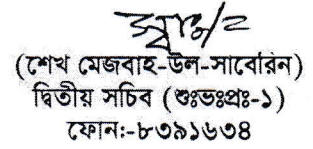 (শেখ মেজবাহ-উল-সাবেরিন)
দ্বিতীয় সচিব (শুঃভঃপ্রঃ-১)
ফোন:-৮৩৯১৬৩৪